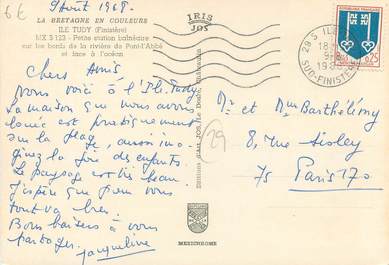 6€
9 Août 1968.
LA BRETAGNE EN COULEURS
ILE TUDY (Finistère)
MX 5123 - Petite station balnéaire
sur les bords de la rivière de Pont-l'Abbé
et face à l'océan
IRIS
JOS
29 S ILE
SUD-FINISTERE
REPUBLIQUE FRANÇAISE
0,25
Chers Amis,
Nous voici à l'Ile Tudy
La maison que nous avons
louée est pratiquement
sur la plage, aussi ima-
ginez la joie des enfants.
Le paysage est très beau.
J'espère que pour vous
tout va bien.
Bons baisers à vous
partager.
Jacqueline
Mr et Mme Barthélémy
8, rue Sisley
75 Paris 17o
29
MEXICHROME